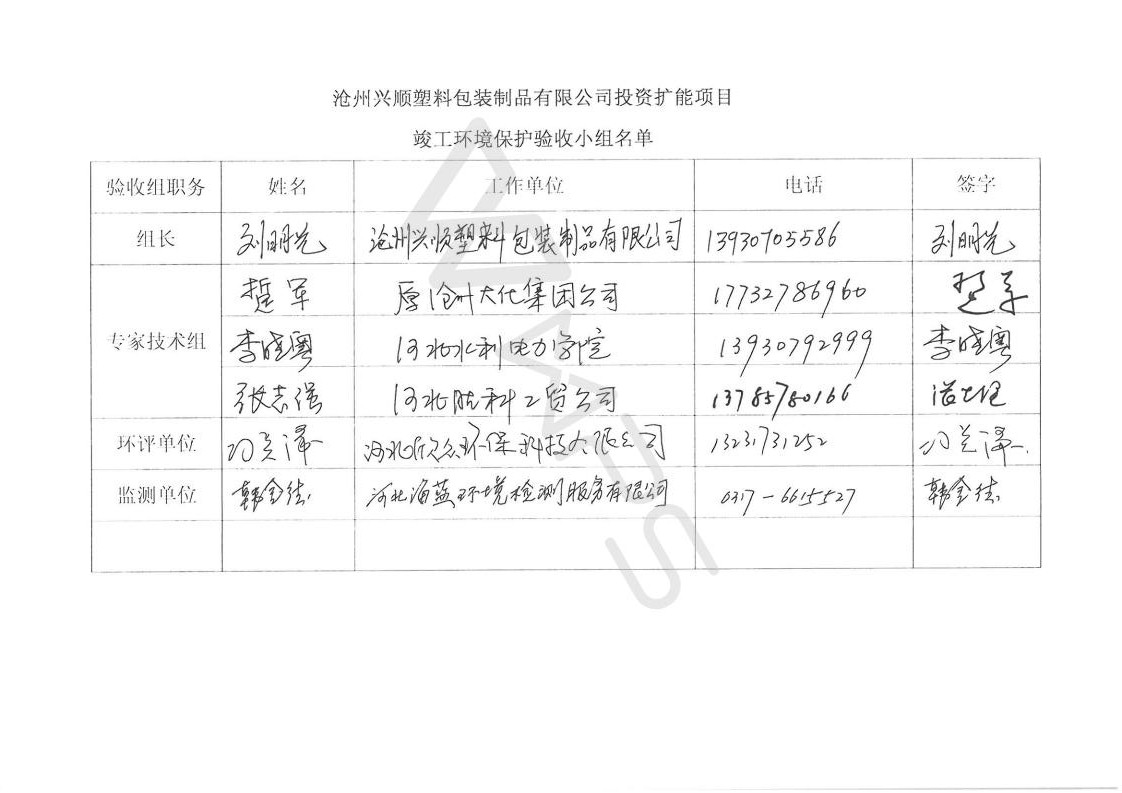 沧州兴顺塑料包装制品有限公司投资扩能项目
竣工环境保护验收小组名单
验收组职务 姓名 工作单位 电话 签字
组长 刘明光 沧州兴顺塑料包装制品有限公司 13930705586 刘明光
军 原沧州大化集团公司 17732786960
专家技术组 李晓粤 河北水利电力学院 13930792999 李晓粤
张志强 河北胜科工贸公司 13785780166
环评单位 河北 众环保科技有限公司 13231731252
监测单位 韩金 河北海蓝环境检测服务有限公司 0317-6615527 韩金
WPS